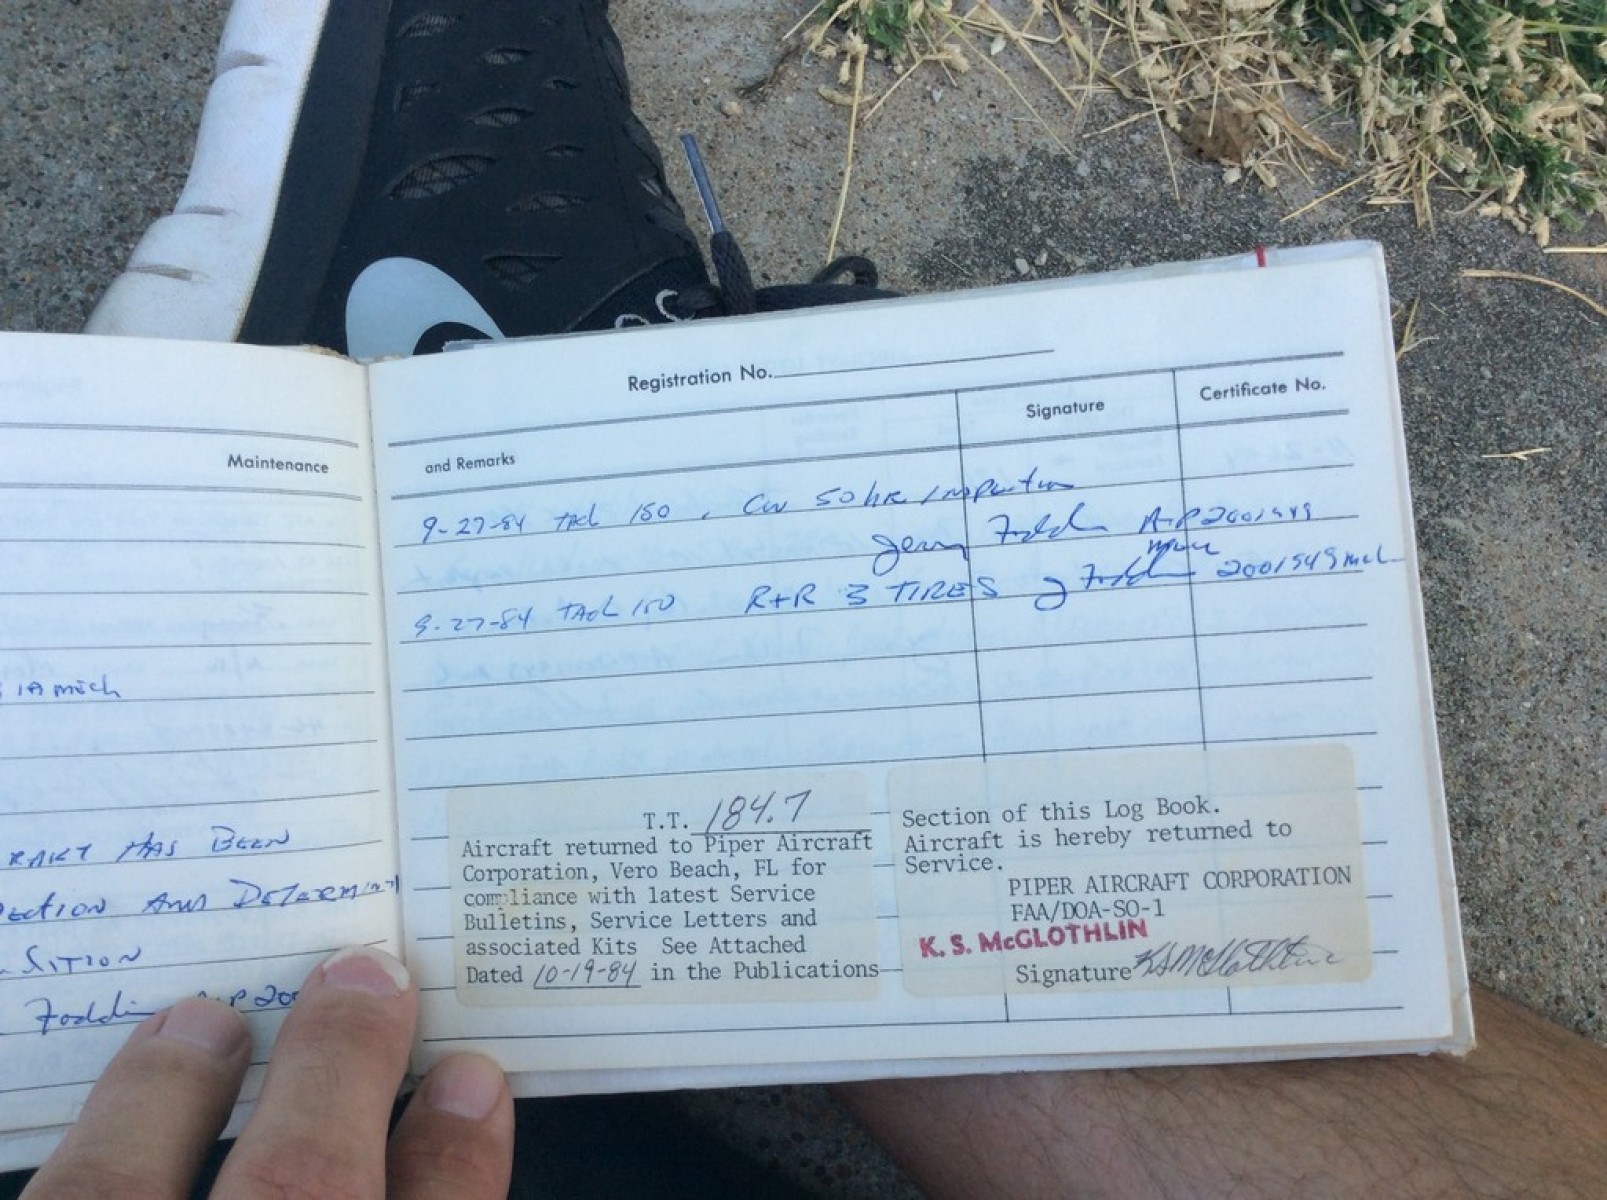 Maintenance
IA mech
HAS BEEN
AND
Foddin A+P
Registration No.
and Remarks Signature Certificate No.
9-27-84 TAch 150 , CW 50 hr Inspection
Jerry Foddin A+P 2001949
9-27-84 TAch 150 R+R 3 TIRES J Foddin 2001949 mech
T.T. 184.7
Aircraft returned to Piper Aircraft
Corporation, Vero Beach, FL for
compliance with latest Service
Bulletins, Service Letters and
associated Kits See Attached
Dated 10-19-84 in the Publications
Section of this Log Book.
Aircraft is hereby returned to
Service.
PIPER AIRCRAFT CORPORATION
FAA/DOA-SO-1
K. S. McGLOTHLIN
Signature KS McGlothlin